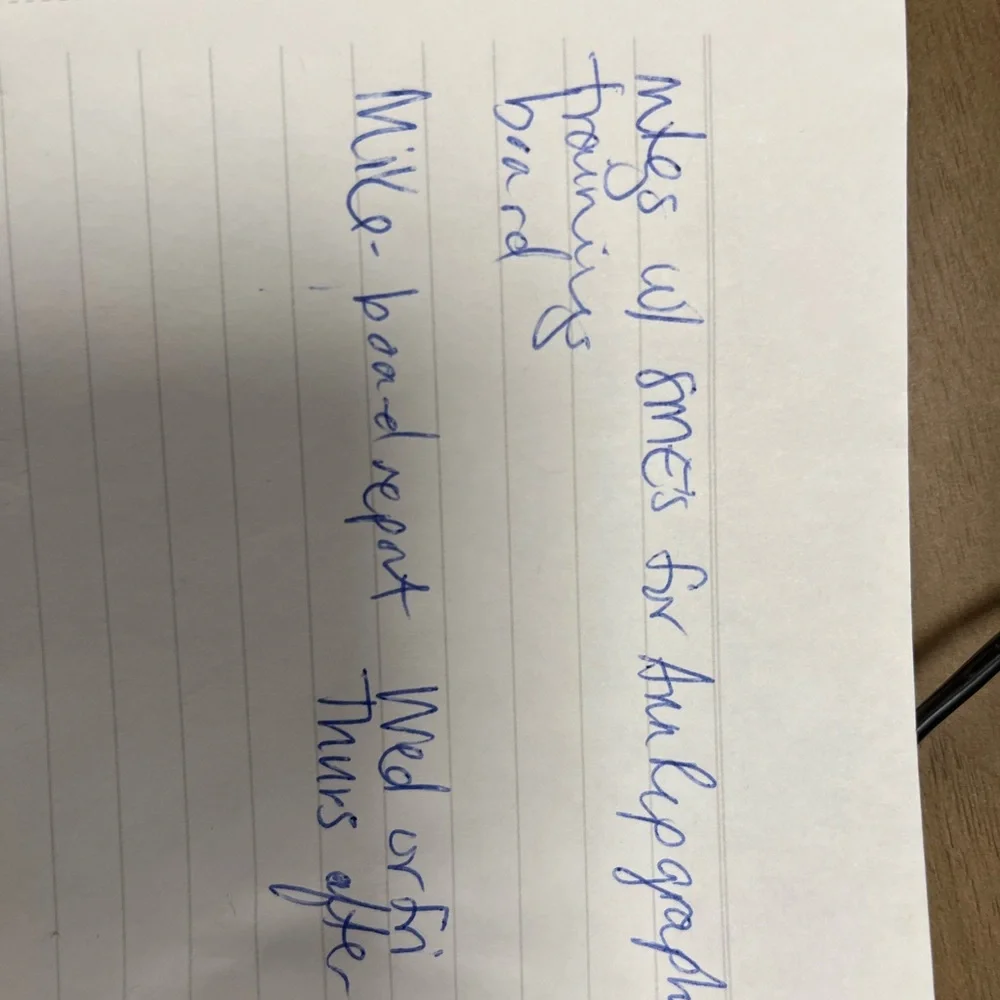 mtgs w/ SMEs for Ann Rep graph
trainings
board
Mike - board report Wed or fri
Thurs after